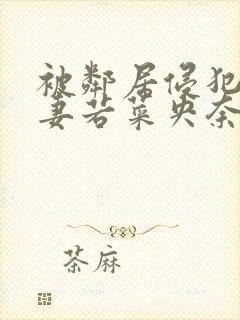 被鄰居侵犯
妻若菜央奈
茶麻